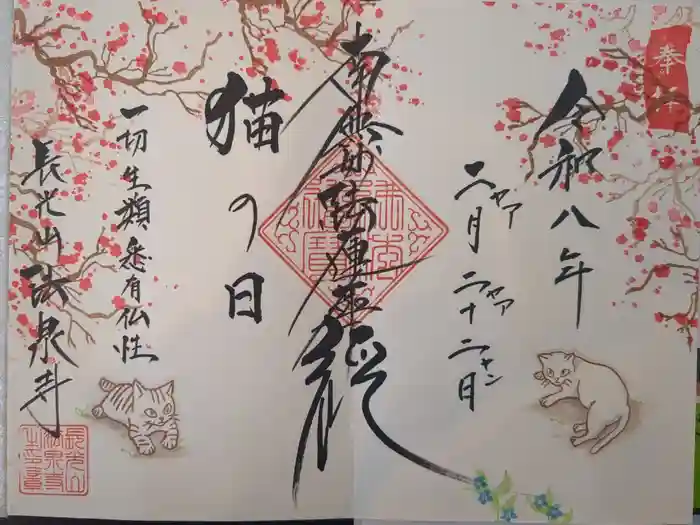 奉拝
令和八年
二ャア月二ャア十二ャン日
南無妙法蓮華経
猫の日
一切生類悉有仏性
長光山法泉寺